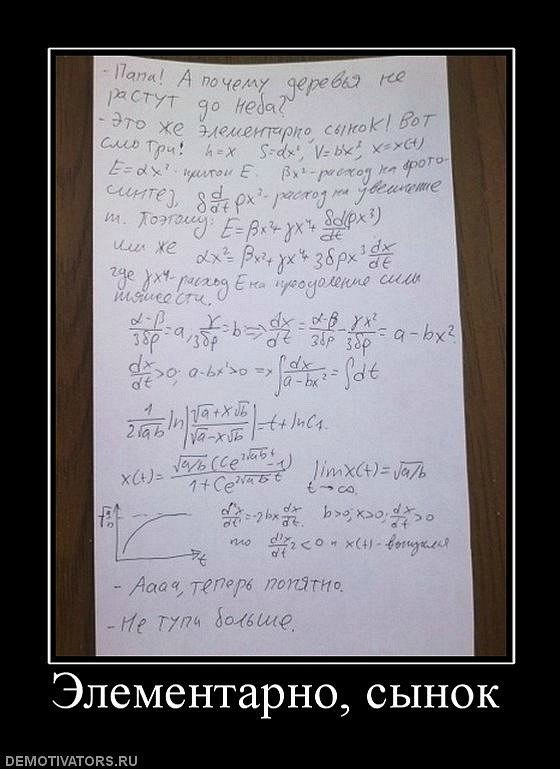 - Папа! А почему деревья не
растут до неба?
- Это же элементарно, сынок! Вот
смотри! h=x S=αx², V=bx³, x=x(t)
E=αx² - приток E. βx² - расход на фото-
синтез, δ d/dt ρx³ - расход на увеличение
m. Поэтому: E=βx²+γx⁴+ δd(ρx³)/dt
или же αx²=βx²+γx⁴+3δρx² dx/dt
где γx⁴ - расход E на преодоление силы
тяжести.
(α-β)/3δρ=a, γ/3δρ=b => dx/dt = (α-β)/3δρ - γx²/3δρ = a-bx²
dx/dt>0; a-bx²>0 => ∫dx/(a-bx²) = ∫dt
1/(2√ab) ln|(√a+x√b)/(√a-x√b)|=t+lnC₁.
x(t)= √a/b (Ce^(2√ab t) -1)/(1+Ce^(2√ab t)) lim x(t)=√a/b
t→∞
√a/b d²x/dt²=-2bx dx/dt. b>0; x>0; dx/dt>0
t то d²x/dt²<0 и x(t) - выпуклая
- Аааа, теперь понятно.
- Не тупи больше.
Элементарно, сынок
DEMOTIVATORS.RU